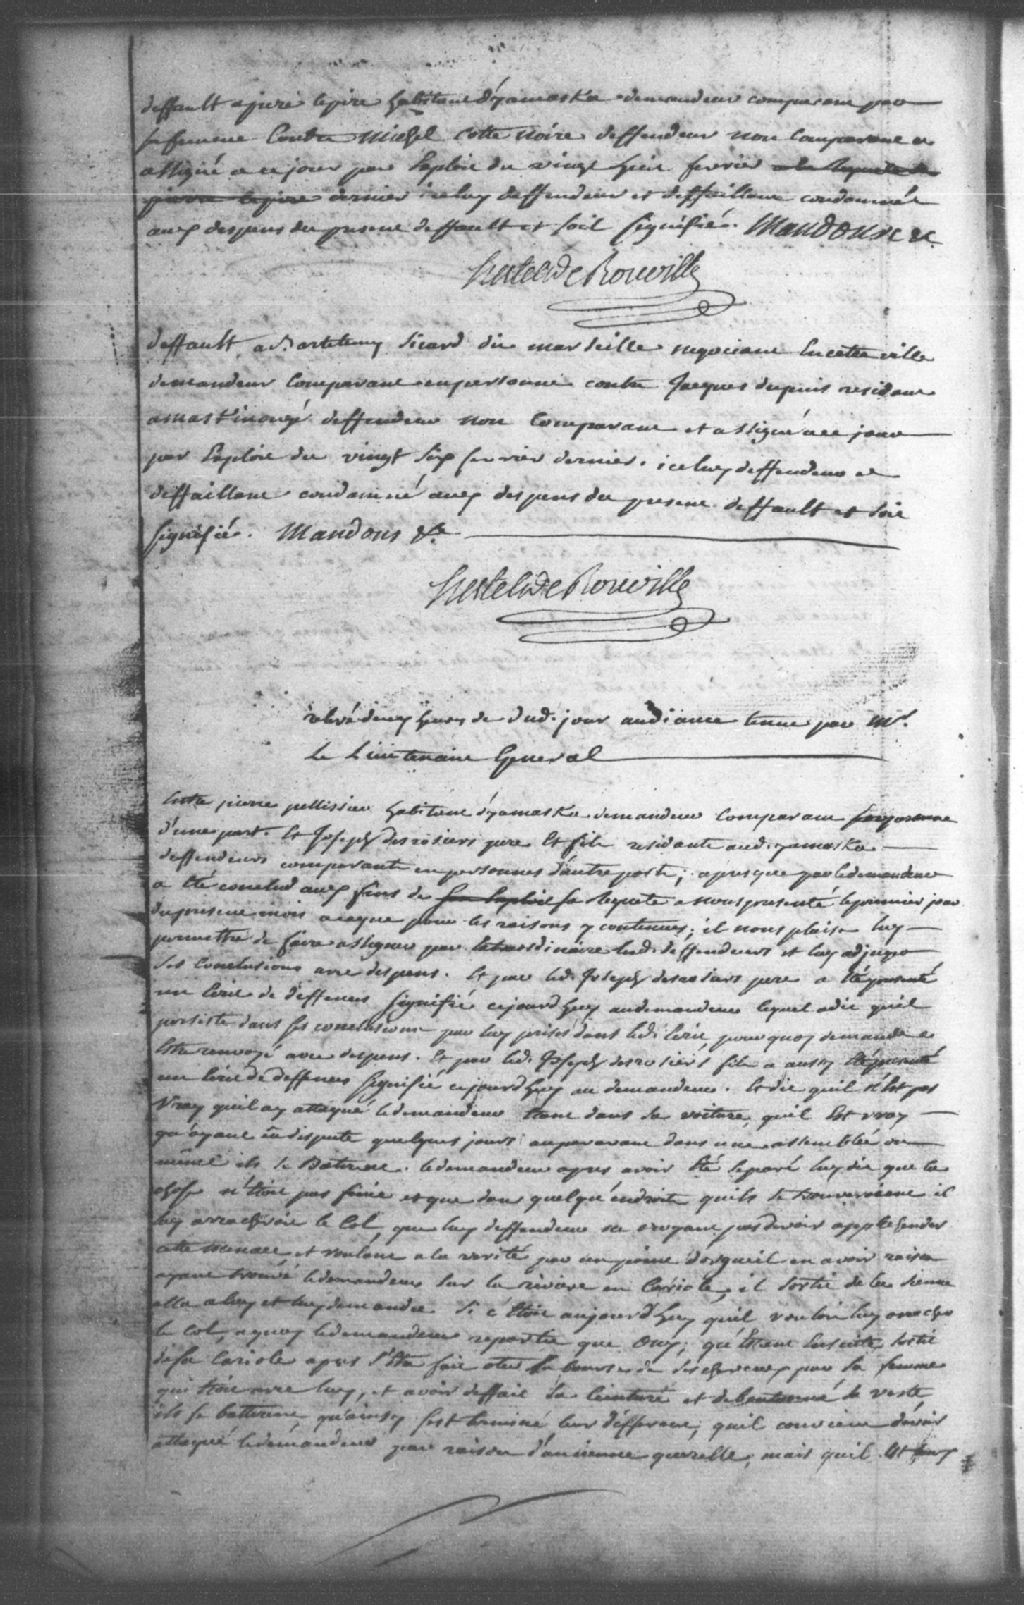 deffault a pierre lepire habitant d'yamaska demandeur comparant par
sa femme Contre Michel Cotte Noire deffendeur non Comparant et
assigné a ce jour par Exploit du vingt huit fevrier a la Requete de
pierre lepire dernier iceluy deffendeur et deffaillant condamné
aux despens du present deffault et soit signifié. Mandons &c.
hertel de Rouville
deffault a Bartelemy Sicard dit marseille negociant En cette ville
demandeur Comparant en personne contre Jacques dupuis resident
a mastinongé deffendeur non Comparant et assigné a ce jour
par Exploit du vingt six fevrier dernier. iceluy deffendeur et
deffaillant condamné aux despens du present deffault et soit
signifié. Mandons &c.
hertel de Rouville
relevé deux heures de dud. jour audiance tenue par Mr.
Le Lieutenant General
Entre pierre pellissier habitant d'yamaska demandeur Comparant en personne
d'une part. Et Joseph Desrosiers pere Et fils residants aud. yamaska
deffendeurs comparants en personnes d'autre parte; apres que par le demandeur
a Eté conclud aux fins de sa Requete a nous presenté le premier jour
du present mois a ce que pour les raisons y contenues; il nous plaise luy
permettre de faire assigner par Extraordinaire lesd. deffendeurs et luy adjuger
ses Conclusions avec despens. Et par led. Joseph desrosiers pere a Eté presenté
un Ecrit de deffenses signifié cejourd'huy au demandeur lequel a dit qu'il
persiste dans ses conclusions par luy prises dans led. Ecrit, pourquoy demande a
Estre renvoyé avec despens. Et par led. Joseph desrosiers fils a aussy Eté presenté
un Ecrit de deffenses signifié cejourd'huy au demandeur. Et dit qu'il n'Est pas
Vray qu'il ay attaqué le demandeur Etant dans sa voiture, qu'il Est vray
qu'ayant eu dispute quelques jours auparavant dans une assemblée ou
même ils se Batirent. le demandeur apres avoir Eté separé luy dit que la
chose n'Etoit pas finie et que dans quelqu'endroit qu'ils se trouveroient il
luy arracheroit le Col, que luy deffendeur ne croyant pas devoir apprehender
cette menace et voulant a la verité par un point d'orgueil en avoir raison
ayant trouvé le demandeur sur la riviere en Cariole, il sortit de la sienne
alla a luy et luy demanda si c'Etoit aujourd'huy qu'il vouloit luy arracher
le Col, a quoy le demandeur repartit que Ouy; qu'Etant Ensuite sortit
de sa Cariole apres s'Etre fait oter la bourse de ses cheveux par sa femme
qui Etoit avec luy, et avoir deffait sa Ceinture et deboutonné sa veste
ils se battirent, qu'ainsy s'est terminé leur différent; qu'il convient d'avoir
attaqué le demandeur par raison d'ancienne querelle, mais qu'il Est